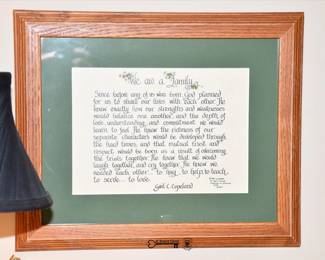 We are a Family
Since before any of us was born God planned
for us to share our lives with each other. He
knew exactly how our strengths and weaknesses
would balance one another, and the depth of
love, understanding, and commitment we would
learn to feel. He knew the richness of our
separate characters would be developed through
the hard times, and that mutual trust and
respect would be born as a result of overcoming
the trials together. He knew that we would
laugh together, and cry together. He knew we
needed each other... to pray, to help, to teach
to serve... to love.
Gail C. Copeland